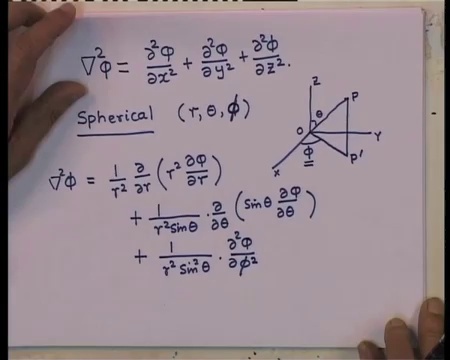 ∇²Φ = ∂²Φ/∂x² + ∂²Φ/∂y² + ∂²Φ/∂z².
Spherical (r, θ, ϕ)
Z
θ
P
O
Y
ϕ
P'
X
∇²Φ = 1/r² ∂/∂r (r² ∂Φ/∂r)
+ 1/r² sinθ · ∂/∂θ (sinθ ∂Φ/∂θ)
+ 1/r² sin²θ · ∂²Φ/∂ϕ²